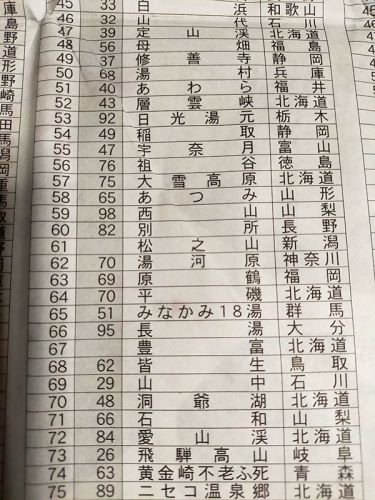 45 33 白浜 和歌山
46 32 山代 石川
47 39 定山渓 北海道
48 56 母畑 福島
49 37 修善寺 静岡
50 68 湯村 兵庫
51 40 あわら 福井
52 43 層雲峡 北海道
53 92 日光湯元 栃木
54 49 稲取 静岡
55 47 宇奈月 富山
56 76 祖谷 徳島
57 75 大雪高原 北海道
58 65 あつみ 山形
59 98 西山 山梨
60 82 別所 長野
61 松之山 新潟
62 70 湯河原 神奈川
63 69 原鶴 福岡
64 70 平磯 北海道
65 51 みなかみ18湯 群馬
66 95 長湯 大分
67 豊富 北海道
68 62 皆生 鳥取
69 29 山中 石川
70 48 洞爺湖 北海道
71 66 石和 山梨
72 84 愛山渓 北海道
73 26 飛騨高山 岐阜
74 63 黄金崎不老ふ死 青森
75 89 ニセコ温泉郷 北海道